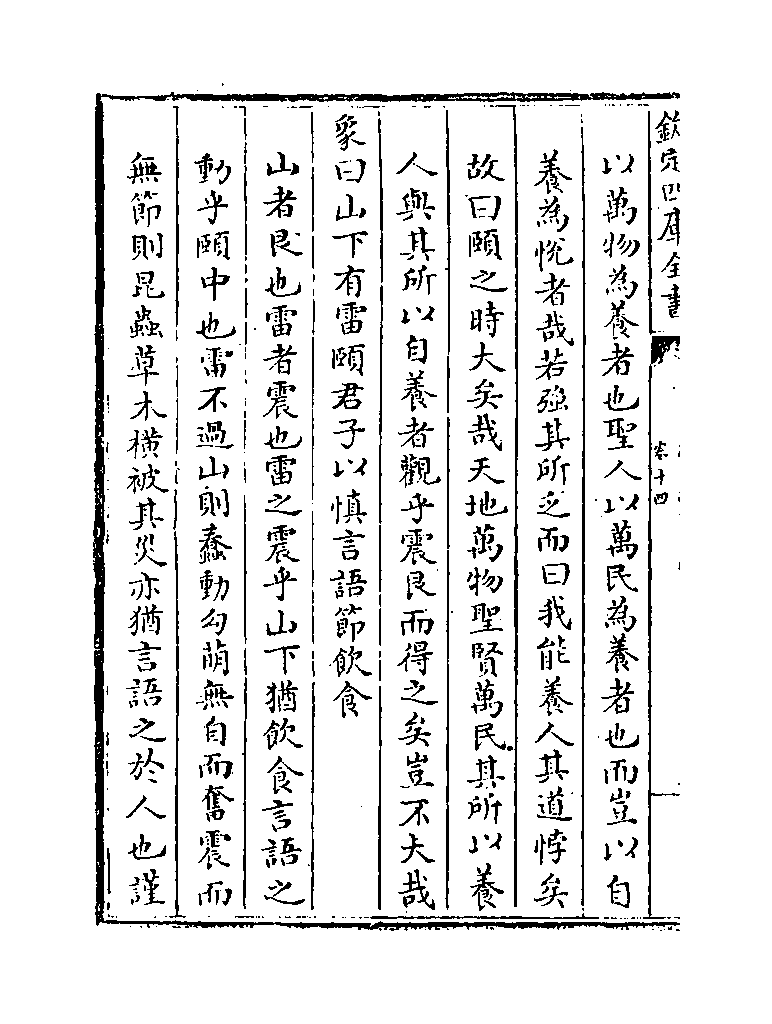 欽定四庫全書
卷十四
以萬物為養者也聖人以萬民為養者也而豈以自
養為悅者哉若強其所乏而曰我能養人其道悖矣
故曰頤之時大矣哉天地萬物聖賢萬民其所以養
人與其所以自養者觀乎震艮而得之矣豈不大哉
象曰山下有雷頤君子以慎言語節飲食
山者艮也雷者震也雷之震乎山下猶飲食言語之
動乎頤中也雷不過山則蠢動勾萌無自而奮震而
無節則昆蟲草木橫被其災亦猶言語之於人也謹